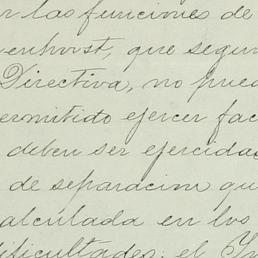 r las funciones de
enhorst, que segun
Directiva, no pued
ermitido ejercer fac
deben ser ejercidas
de separacion qu
alculada en los
dificultades; el In